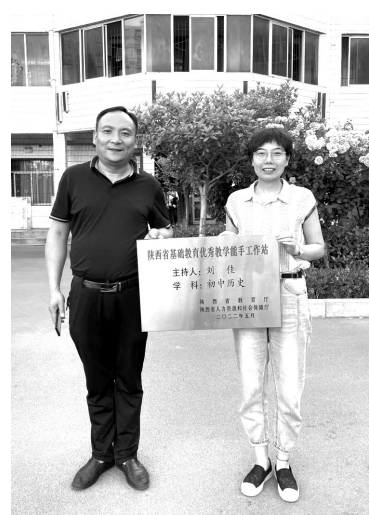 陕西省基础教育优秀教学能手工作站
主持人：刘佳
学科：初中历史
陕西省教育厅
陕西省人力资源和社会保障厅
二〇二二年五月